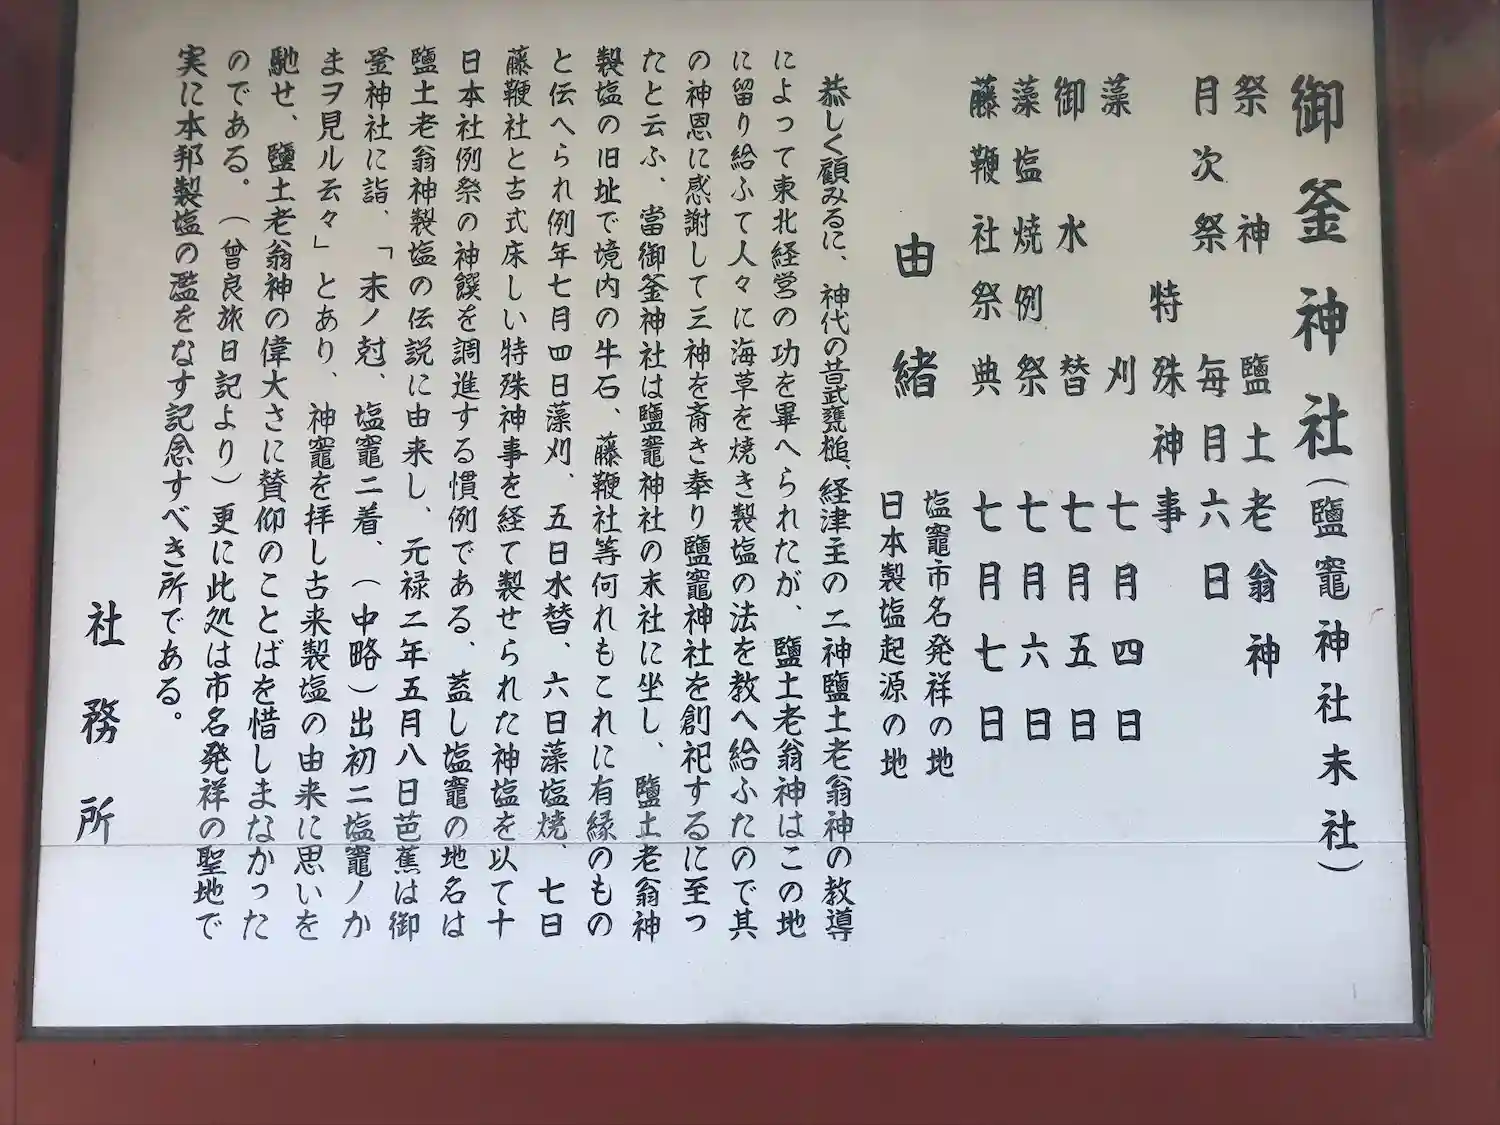 御釜神社(鹽竈神社末社)
祭神 鹽土老翁神
月次祭 毎月六日
特殊神事
藻刈 七月四日
御水替 七月五日
藻塩焼例祭 七月六日
藤鞭社祭典 七月七日
由緒
塩竈市名発祥の地
日本製塩起源の地
恭しく顧みるに、神代の昔武甕槌、経津主の二神鹽土老翁神の教導
によって東北経営の功を畢へられたが、鹽土老翁神はこの地
に留り給ふて人々に海草を焼き製塩の法を教へ給ふたので其
の神恩に感謝して三神を斎き奉り鹽竈神社を創祀するに至っ
たと云ふ、當御釜神社は鹽竈神社の末社に坐し、鹽土老翁神
製塩の旧址で境内の牛石、藤鞭社等何れもこれに有縁のもの
と伝へられ例年七月四日藻刈、五日水替、六日藻塩焼、七日
藤鞭社と古式床しい特殊神事を経て製せられた神塩を以て十
日本社例祭の神饌を調進する慣例である、蓋し塩竈の地名は
鹽土老翁神製塩の伝説に由来し、元禄二年五月八日芭蕉は御
釜神社に詣、「末ノ尅、塩竈ニ着、(中略)出初ニ塩竈ノか
まヲ見ル云々」とあり、神竈を拝し古来製塩の由来に思いを
馳せ、鹽土老翁神の偉大さに賛仰のことばを惜しまなかった
のである。(曾良旅日記より)更に此処は市名発祥の聖地で
実に本邦製塩の濫をなす記念すべき所である。
社務所